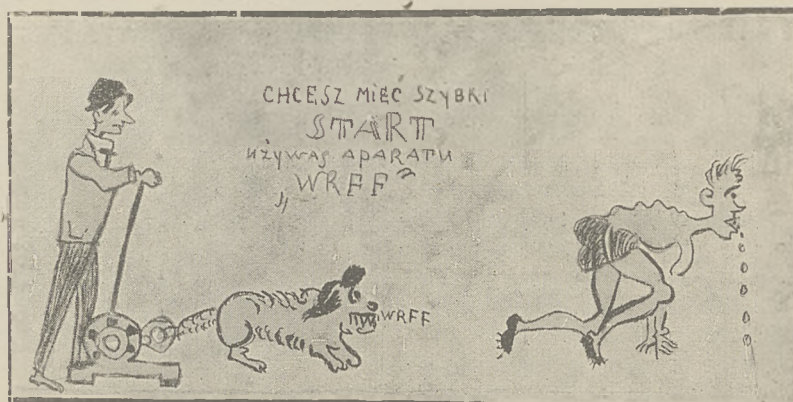 CHCESZ MIEĆ SZYBKI
START
UŻYWAJ APARATU
„WRFF”
WRFF